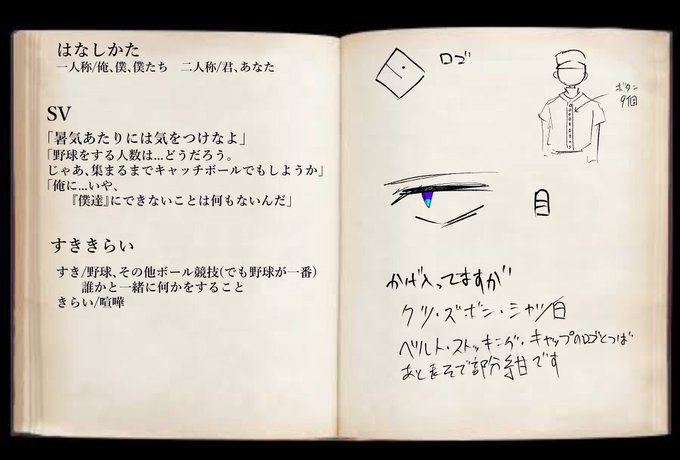 はなしかた
一人称/俺、僕、僕たち　二人称/君、あなた
SV
「暑気あたりには気をつけなよ」
「野球をする人数は...どうだろう。
じゃあ、集まるまでキャッチボールでもしようか」
「俺に...いや、
『僕達』にできないことは何もないんだ」
すききらい
すき/野球、その他ボール競技(でも野球が一番)
誰かと一緒に何かをすること
きらい/喧嘩
ロゴ
ボタン
9個
目
かげ入ってますが
クツ・ズボン・シャツ白
ベルト・ストッキング・キャップのロゴとつば
あと長そで部分紺です